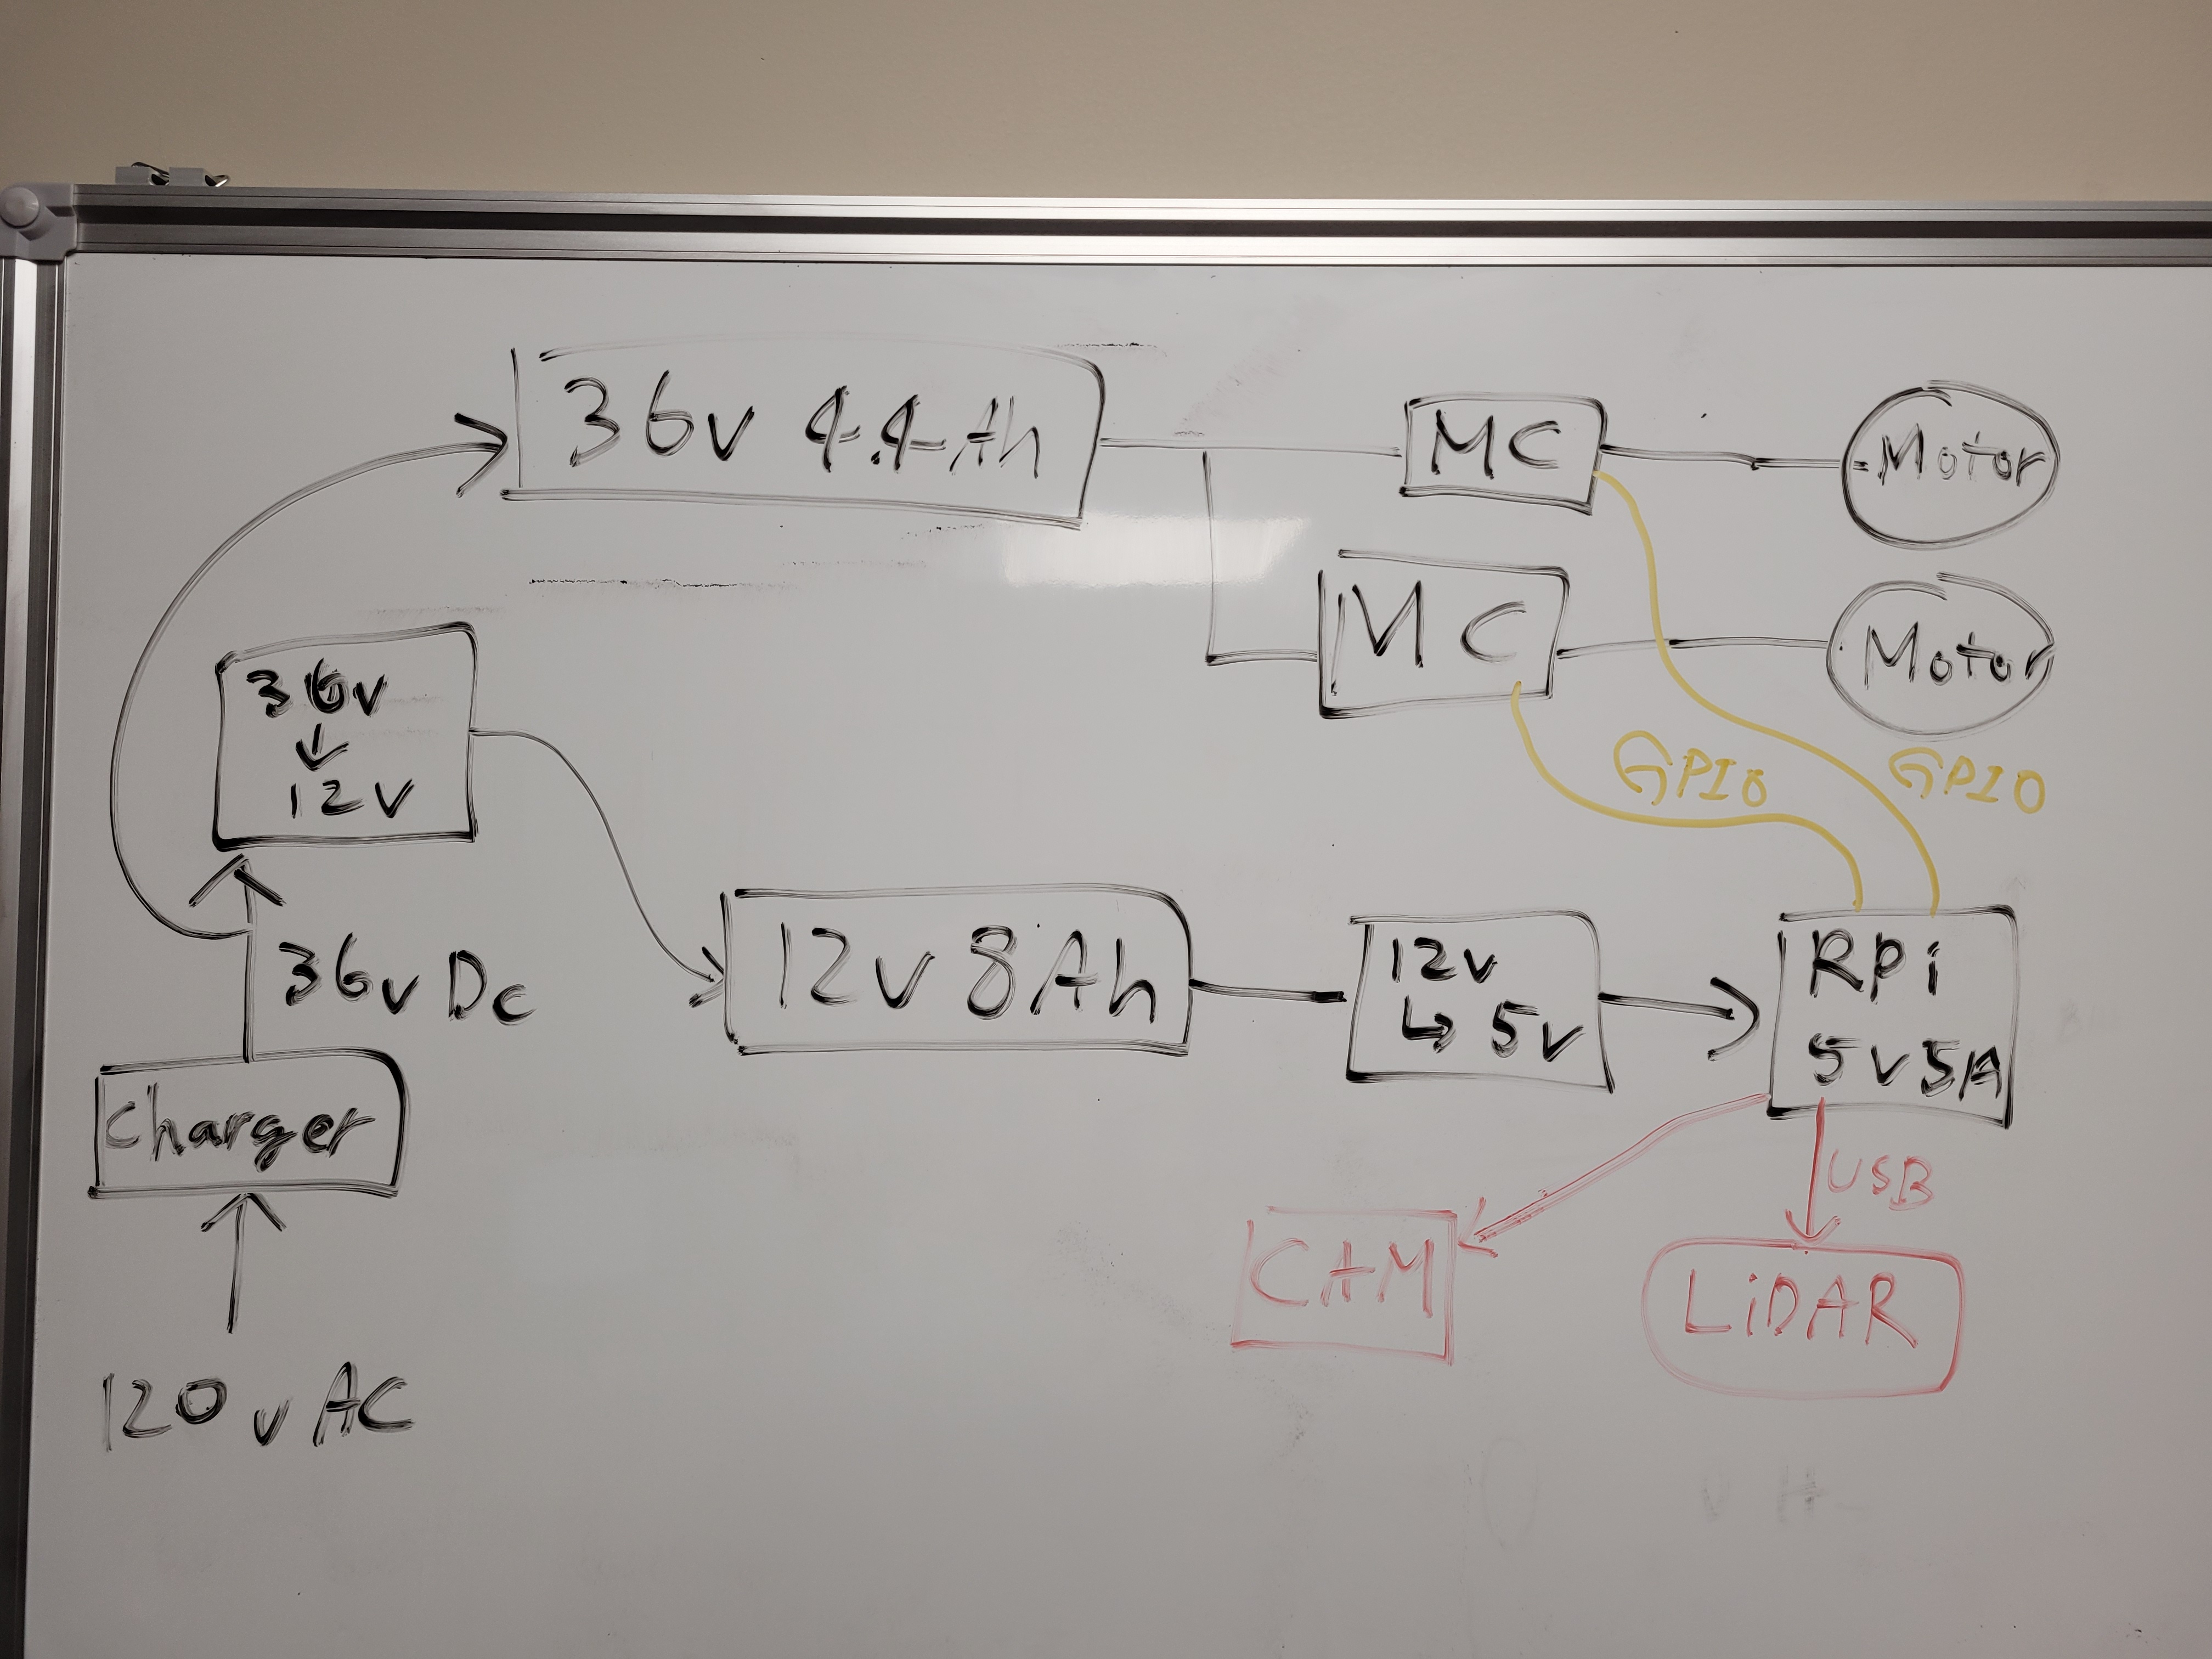 36v 4.4 Ah
MC
Motor
MC
Motor
36v
↓
12v
GPIO
GPIO
36v Dc
12v 8Ah
12v
↳ 5v
RPi
5v5A
Charger
USB
CAM
LiDAR
120v AC